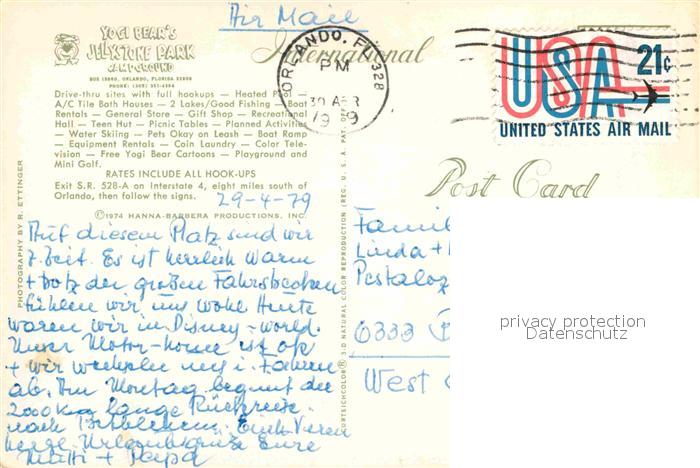 Air Mail
YOGI BEAR'S
JELLYSTONE PARK
CAMPGROUND
International
ORLANDO, FL 328
PM
30 APR
USA 21c
UNITED STATES AIR MAIL
Drive-thru sites with full hookups — Heated Pool —
A/C Tile Bath Houses — 2 Lakes/Good Fishing — Boat
Rentals — General Store — Gift Shop — Recreational
Hall — Teen Hut — Picnic Tables — Planned Activities
— Water Skiing — Pets Okay on Leash — Boat Ramp
— Equipment Rentals — Coin Laundry — Color Tele-
vision — Free Yogi Bear Cartoons — Playground and
Mini Golf.
RATES INCLUDE ALL HOOK-UPS
Exit S.R. 528-A on Interstate 4, eight miles south of
Orlando, then follow the signs.
29-4-79
©1974 HANNA-BARBERA PRODUCTIONS, INC.
PHOTOGRAPHY BY R. ETTINGER
Post Card
Auf diesem Platz sind wir
z. Zeit. Es ist herrlich warm
+ trotz der großen
fühlen wir uns wohl Heute
waren wir in Disney-world.
Unser Motor-home ist ok
+ wir wechseln uns i. Fahren
ab. Am Montag beginnt die
2000 km lange Rückreise
nach Bethlehem. Euch
Urlaubsgrüße Eure
Mutti + Papa
CURTEICHCOLOR® 3-D NATURAL COLOR REPRODUCTION (REG. U.S.A. PAT. OFF.)
Famil
Linda +
Pestaloz
6333
West
privacy protection
Datenschutz